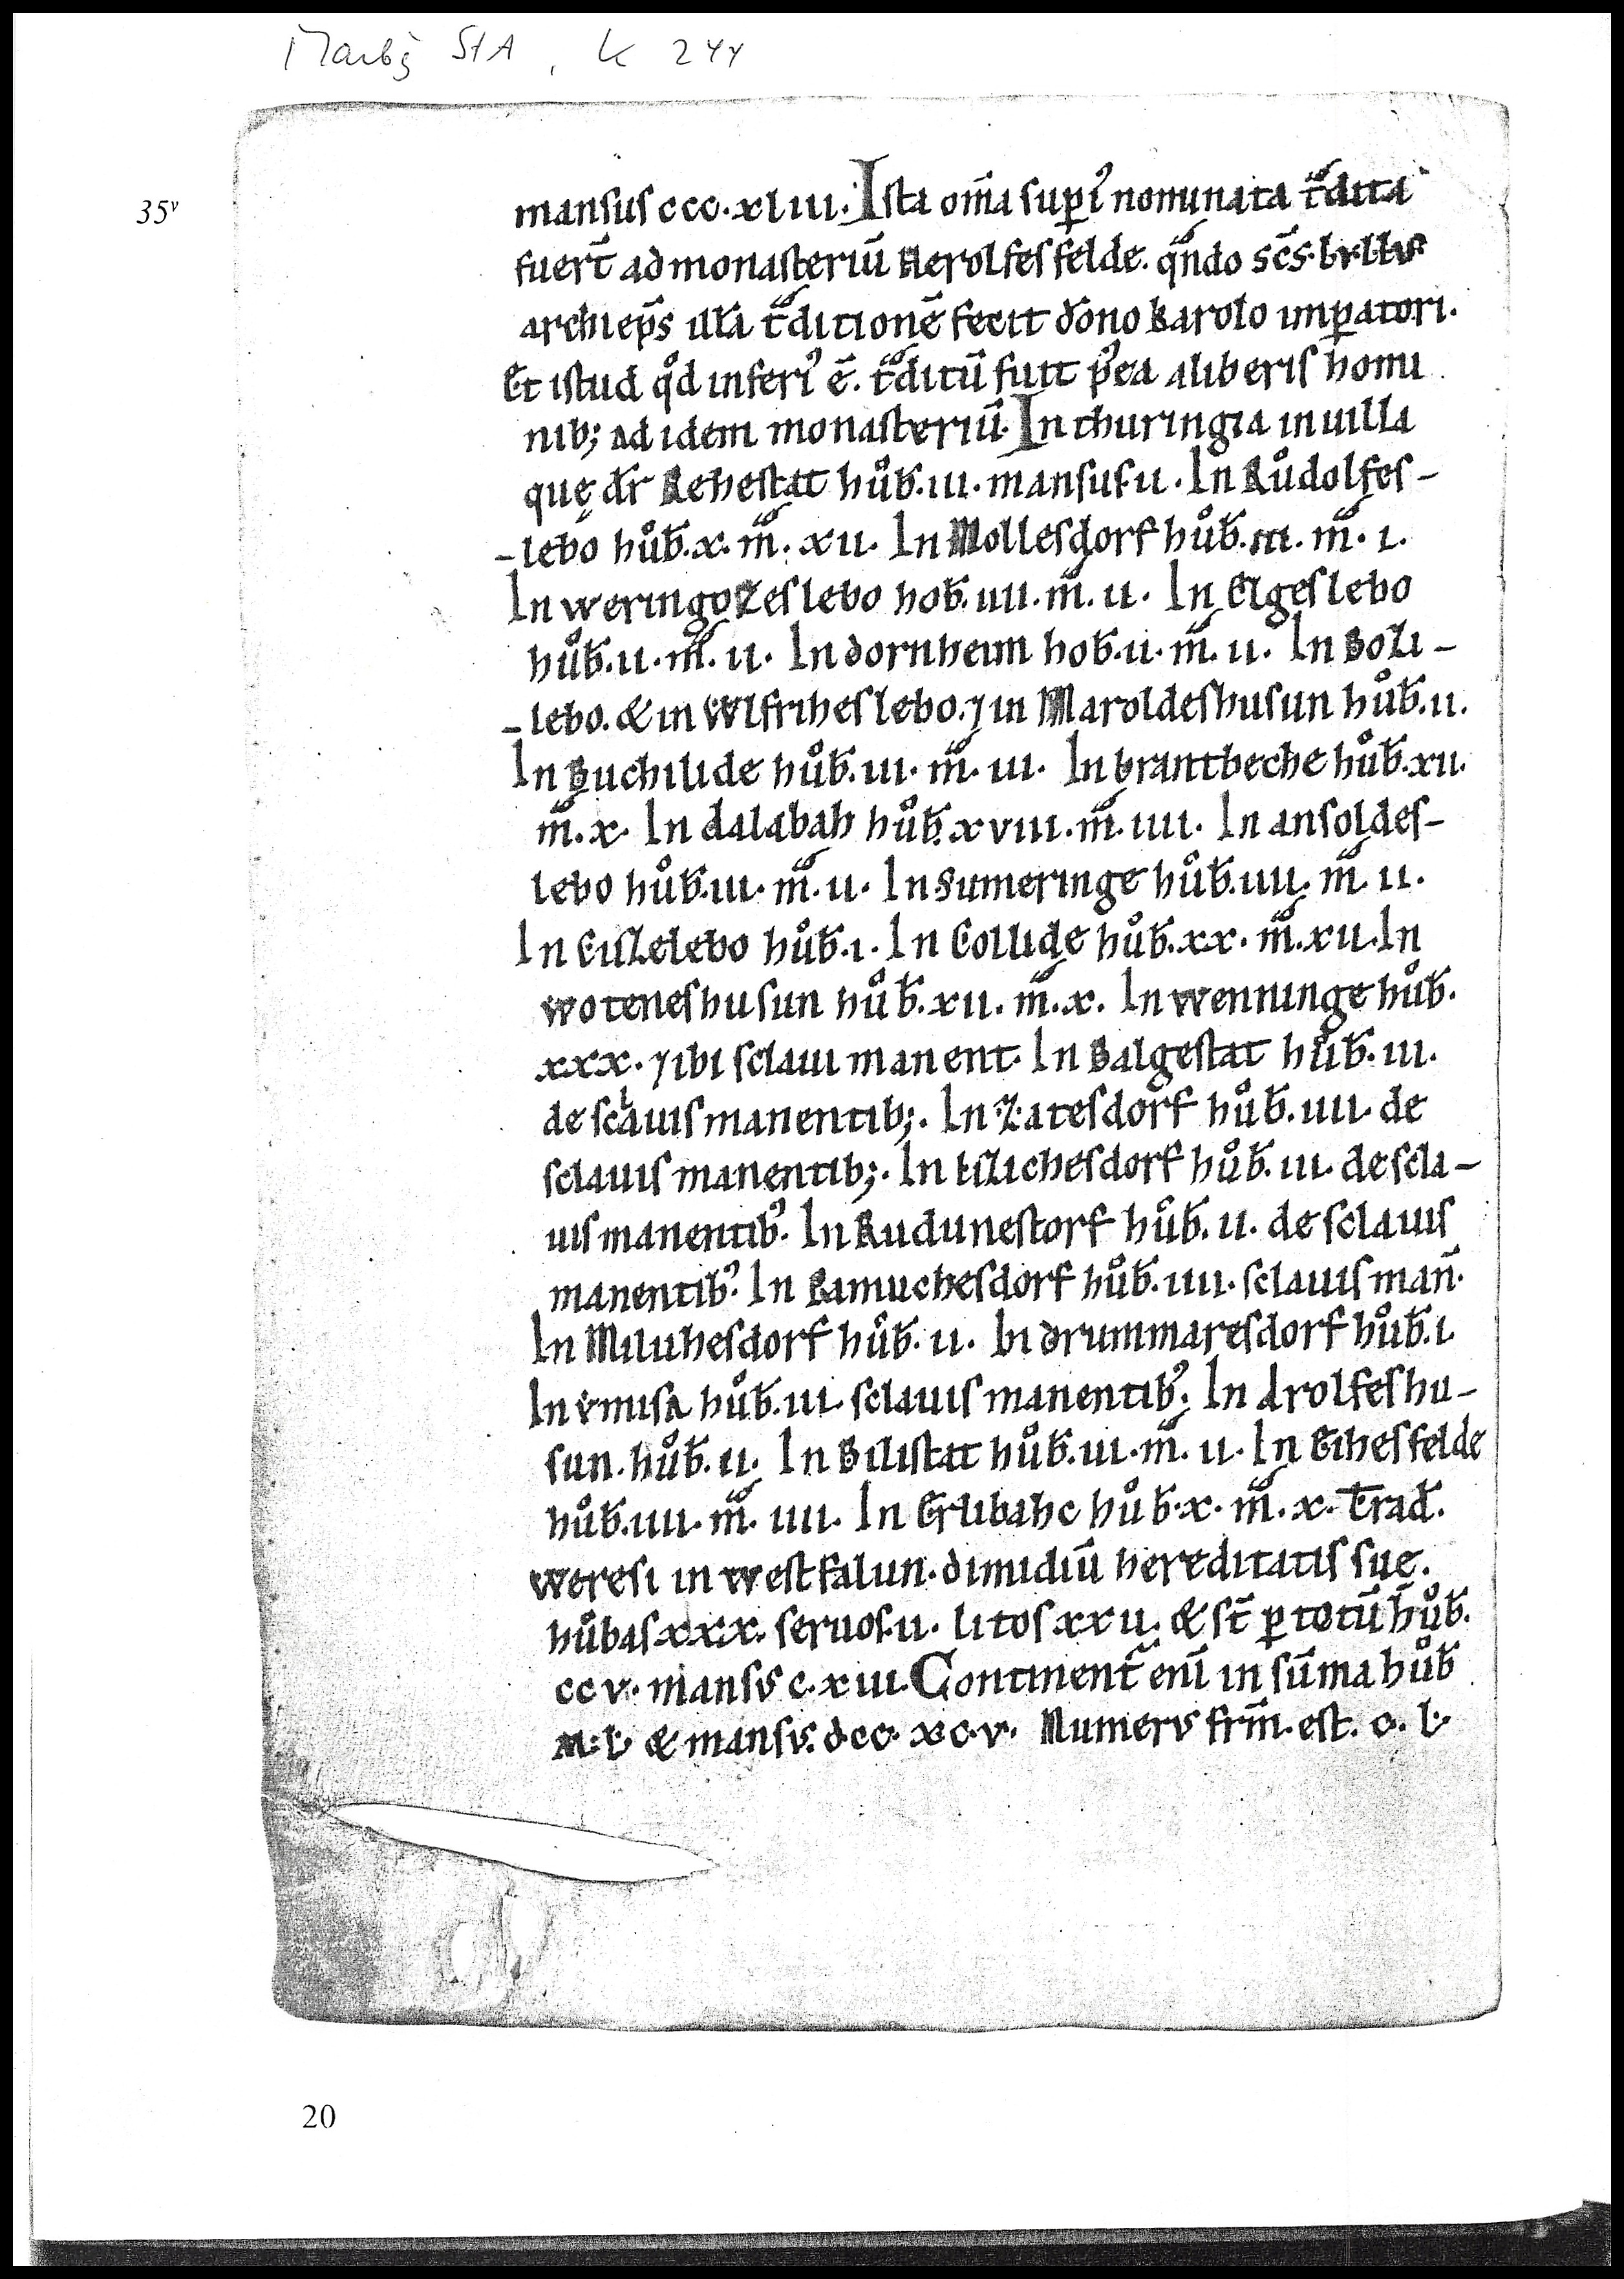 Marbg StA, K 244
35v
mansus ccc·xliii· Ista om̄a sup̱iꝰ nominata t̄dita
fuer̄t ad monasteriū Herolfesfelde. qn̄do sc̄s·lvllvs
archiep̄s illā t̄ditionē fecit dōno Karolo imꝑatori.
Et istud qd̊ inferiꝰ ē. t̄ditū fuit p̱ꝰea a liberis homi
nib; ad idem monasteriū· In thuringia in uilla
quę dr̄ Rehestat hůƀ.iii. mansus.ii. In Růdolfes-
-lebo hůƀ.x. m̄. xii. In Mollesdorf hůƀ.iii. m̄. i.
In weringozeslebo hoƀ.iiii. m̄. ii. In Elgeslebo
hůƀ.ii. m̄. ii. In dornheim hoƀ.ii. m̄. ii. In Boli-
-lebo. & in Wlfriheslebo. ⁊ in Maroldeshusun hůƀ.ii.
In Buchilide hůƀ.iii. m̄. iii. In brantbeche hůƀ.xii.
m̄.x. In dalabah hůƀ.xviii. m̄. iiii. In ansoldes-
lebo hůƀ.iii. m̄.ii. In Sumeringe hůƀ.iiii. m̄ ii.
In Eislelebo hůƀ.i. In Collide hůƀ.xx. m̄.xii. In
woteneshusun hůƀ.xii. m̄.x. In wenninge hůƀ.
xxx. ⁊ ibi sclaui manent. In Balgestat hůƀ.iii.
de sclauis manentib;. In Zatesdorf hůƀ.iiii. de
sclauis manentib;. In tizichesdorf hůƀ.iii. de scla-
uis manentibꝰ. In Rudunestorf hůƀ.ii. de sclauis
manentibꝰ. In Ramuchesdorf hůƀ.iiii. sclauis man̄.
In Miluhesdorf hůƀ.ii. In drummaresdorf hůƀ.i.
In vmisa hůƀ.iii. sclauis manentibꝰ. In drolfeshu-
sun. hůƀ.ii. In Bilistat hůƀ.iii. m̄. ii. In Eihesfelde
hůƀ.iiii. m̄. iiii. In Erlibahc hůƀ.x. m̄.x. Trad̄.
weresi in westfalun. dimidiū hereditatis suę.
hůbas xxx. seruos.ii. litos xxii. & st̄ ꝑ totū hůƀ.
ccv. mansvs c.xiii. Continent̄ enī in sūma hůƀ
m:l. & mansvs. dcc. xc.v. Numerus frm̄. est. c. l.
20